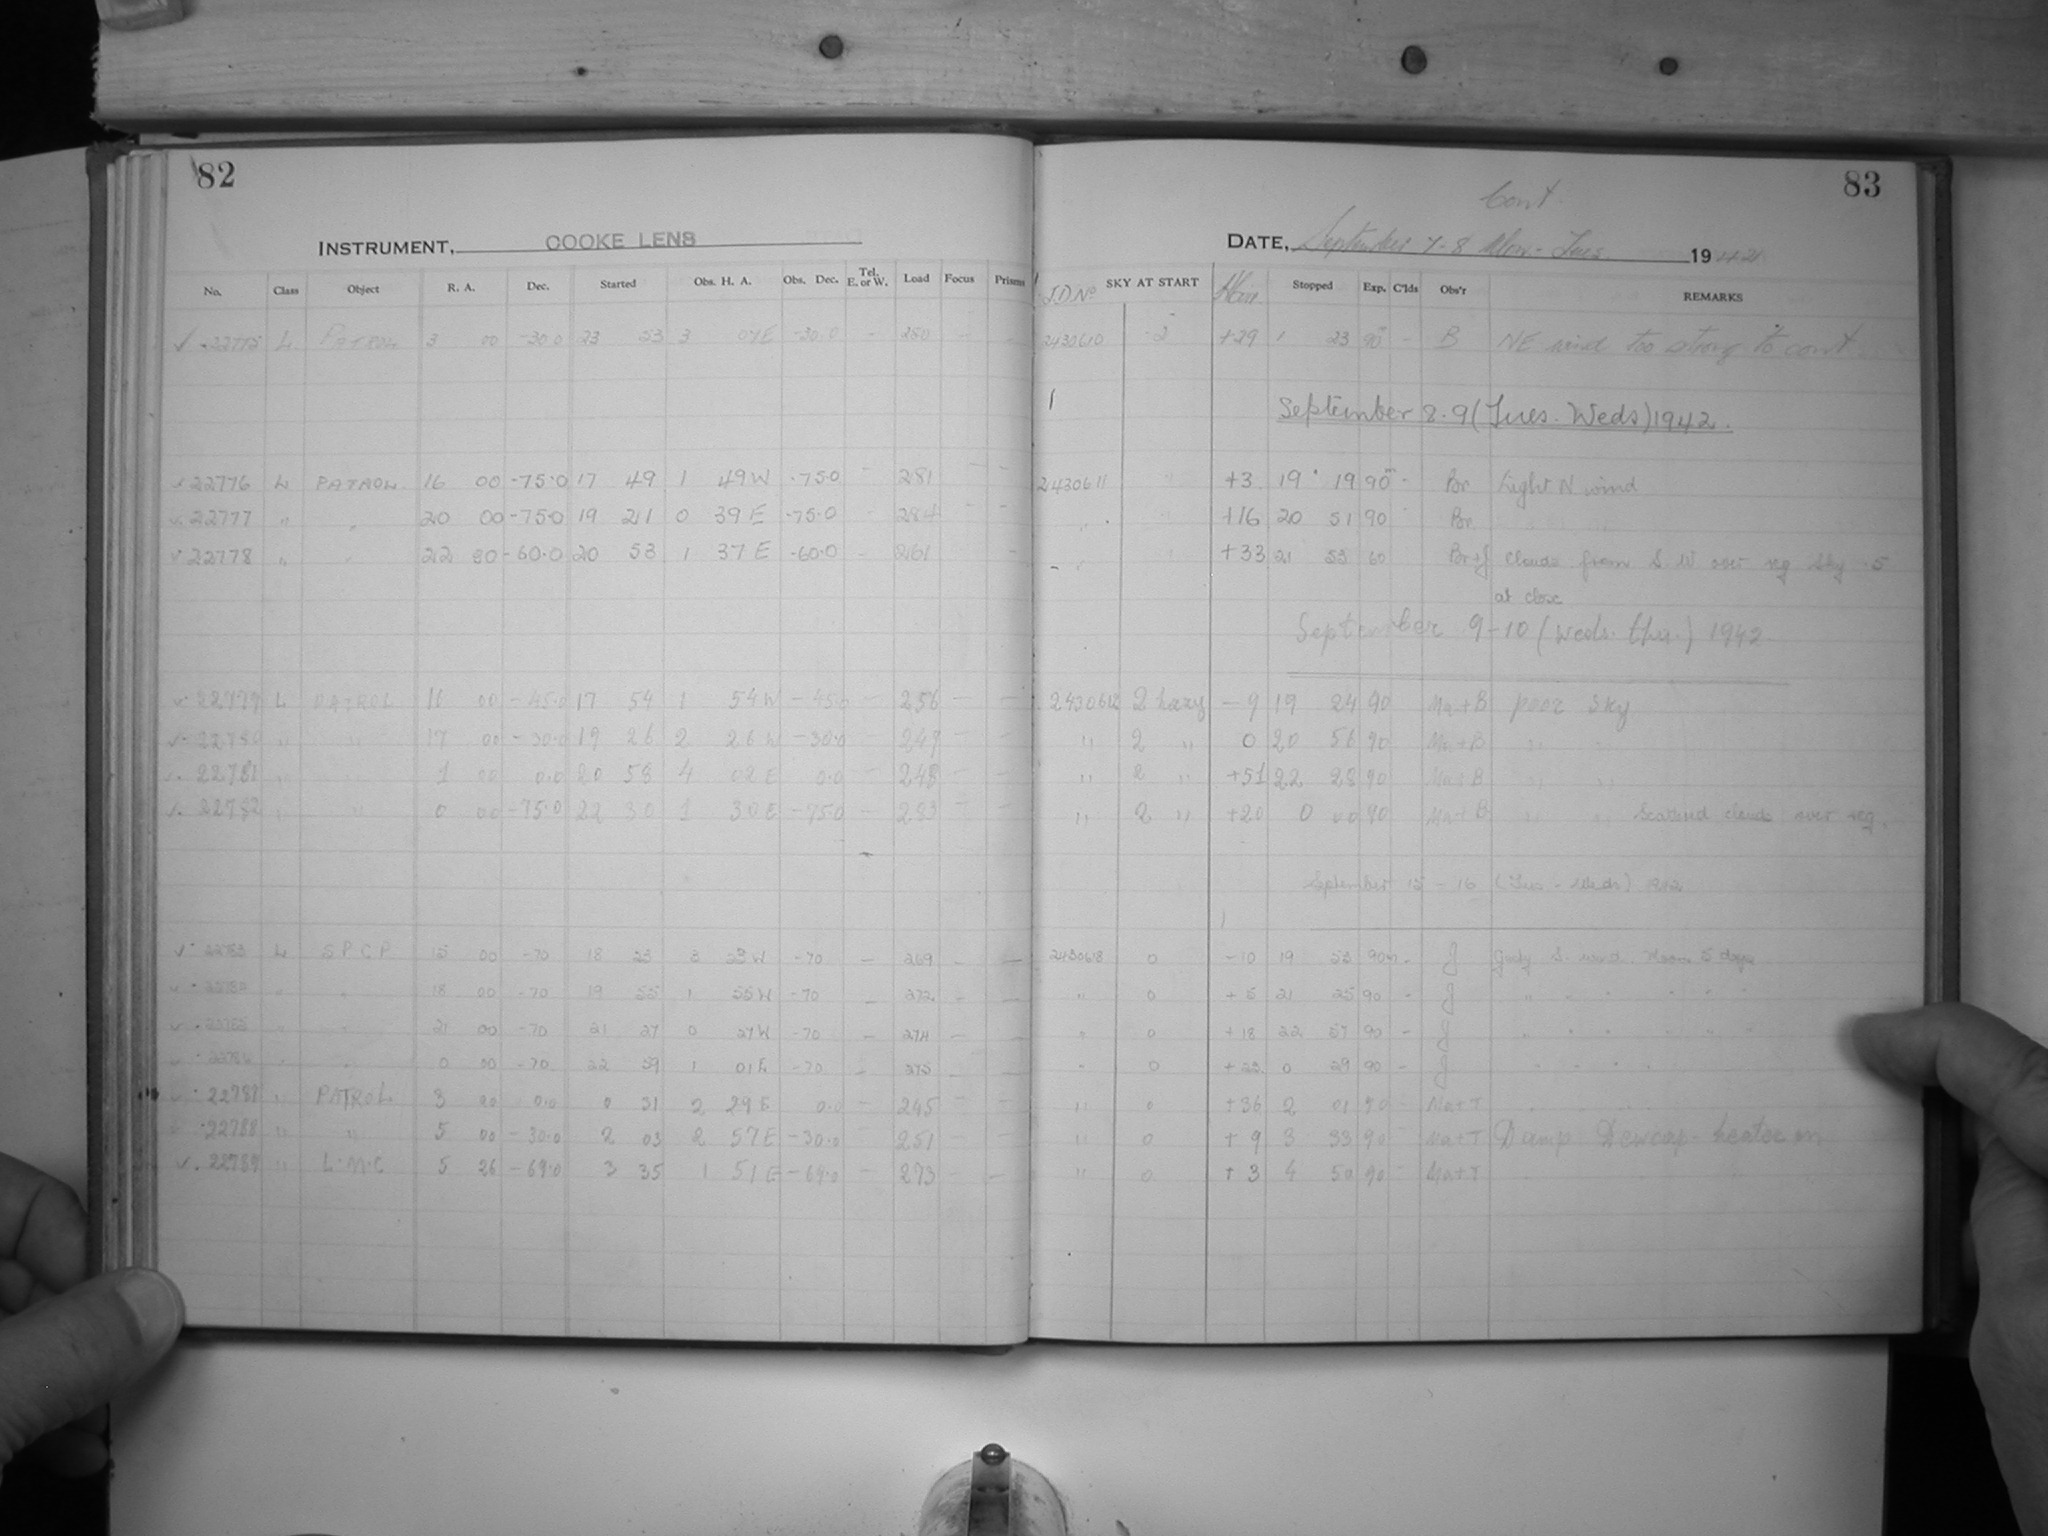 82
INSTRUMENT, COOKE LENS
No. Class Object R. A. Dec. Started Obs. H. A. Obs. Dec. Tel. E. or W. Load Focus Prisms
22775 L PATROL 3 00 -30.0 23 53 3 07E -30.0 - 280 - -
22776 L PATROL 16 00 -75.0 17 49 1 49W -75.0 - 281 - -
22777 " " 20 00 -75.0 19 21 0 39E -75.0 284 - -
22778 " " 22 30 -60.0 20 53 1 37E -60.0 - 261 -
22779 L PATROL 16 00 -45.0 17 54 1 54W -45.0 - 256 - -
22780 " " 17 00 -30.0 19 26 2 26W -30.0 - 249 - -
22781 " 1 00 0.0 20 58 4 02E 0.0 - 248 - -
22782 " " 0 00 -75.0 22 30 1 30E -75.0 - 283 - -
22783 L S.P.C.P. 15 00 -70 18 23 3 23W -70 - 269 - -
" " 18 00 -70 19 55 1 55W -70 - 272 - -
22785 " " 21 00 -70 21 27 0 27W -70 - 274 - -
22786 " " 0 00 -70 22 59 1 01E -70 - 275 - -
22787 " PATROL 3 00 0.0 0 31 2 29E 0.0 - 245 - -
22788 " " 5 00 -30.0 2 03 2 57E -30.0 - 251 - -
22789 " L.M.C 5 26 -69.0 3 35 1 51E -69.0 - 273 - -
83
Cont.
DATE, September 7-8 Mon-Tues. 1942
J.D. No SKY AT START Stopped Exp. C'lds Obs'r REMARKS
2430610 2 +29 1 23 90m - B NE wind too strong to cont
September 8-9 (Tues. Weds) 1942.
2430611 " +3 19 19 90m - Por Light N wind
" " +16 20 51 90 Por " " "
" " +33 21 53 60 Por+J clouds from S.W over reg Sky 5
at close
September 9-10 (Weds. thu.) 1942
2430612 2 hazy -9 19 24 90 Ma+B poor sky
" 2 " 0 20 56 90 Ma+B " "
" 2 " +51 22 28 90 Ma+B " "
" 2 " +20 0 00 90 Ma+B " " Scattered clouds over reg.
September 15-16 (Tues-Weds) 1942
2430618 0 -10 19 53 90m - J Gusty S. wind. Moon 5 days
" 0 +5 21 25 90 - J " " " " " "
" 0 +18 22 57 90 - J " " " " " "
" 0 0 29 90 - J " " " " "
" 0 +36 2 01 90 - Ma+T
" 0 +9 3 33 90 - Ma+T Damp Dewcap-heater on
" 0 +3 4 90 - Ma+T